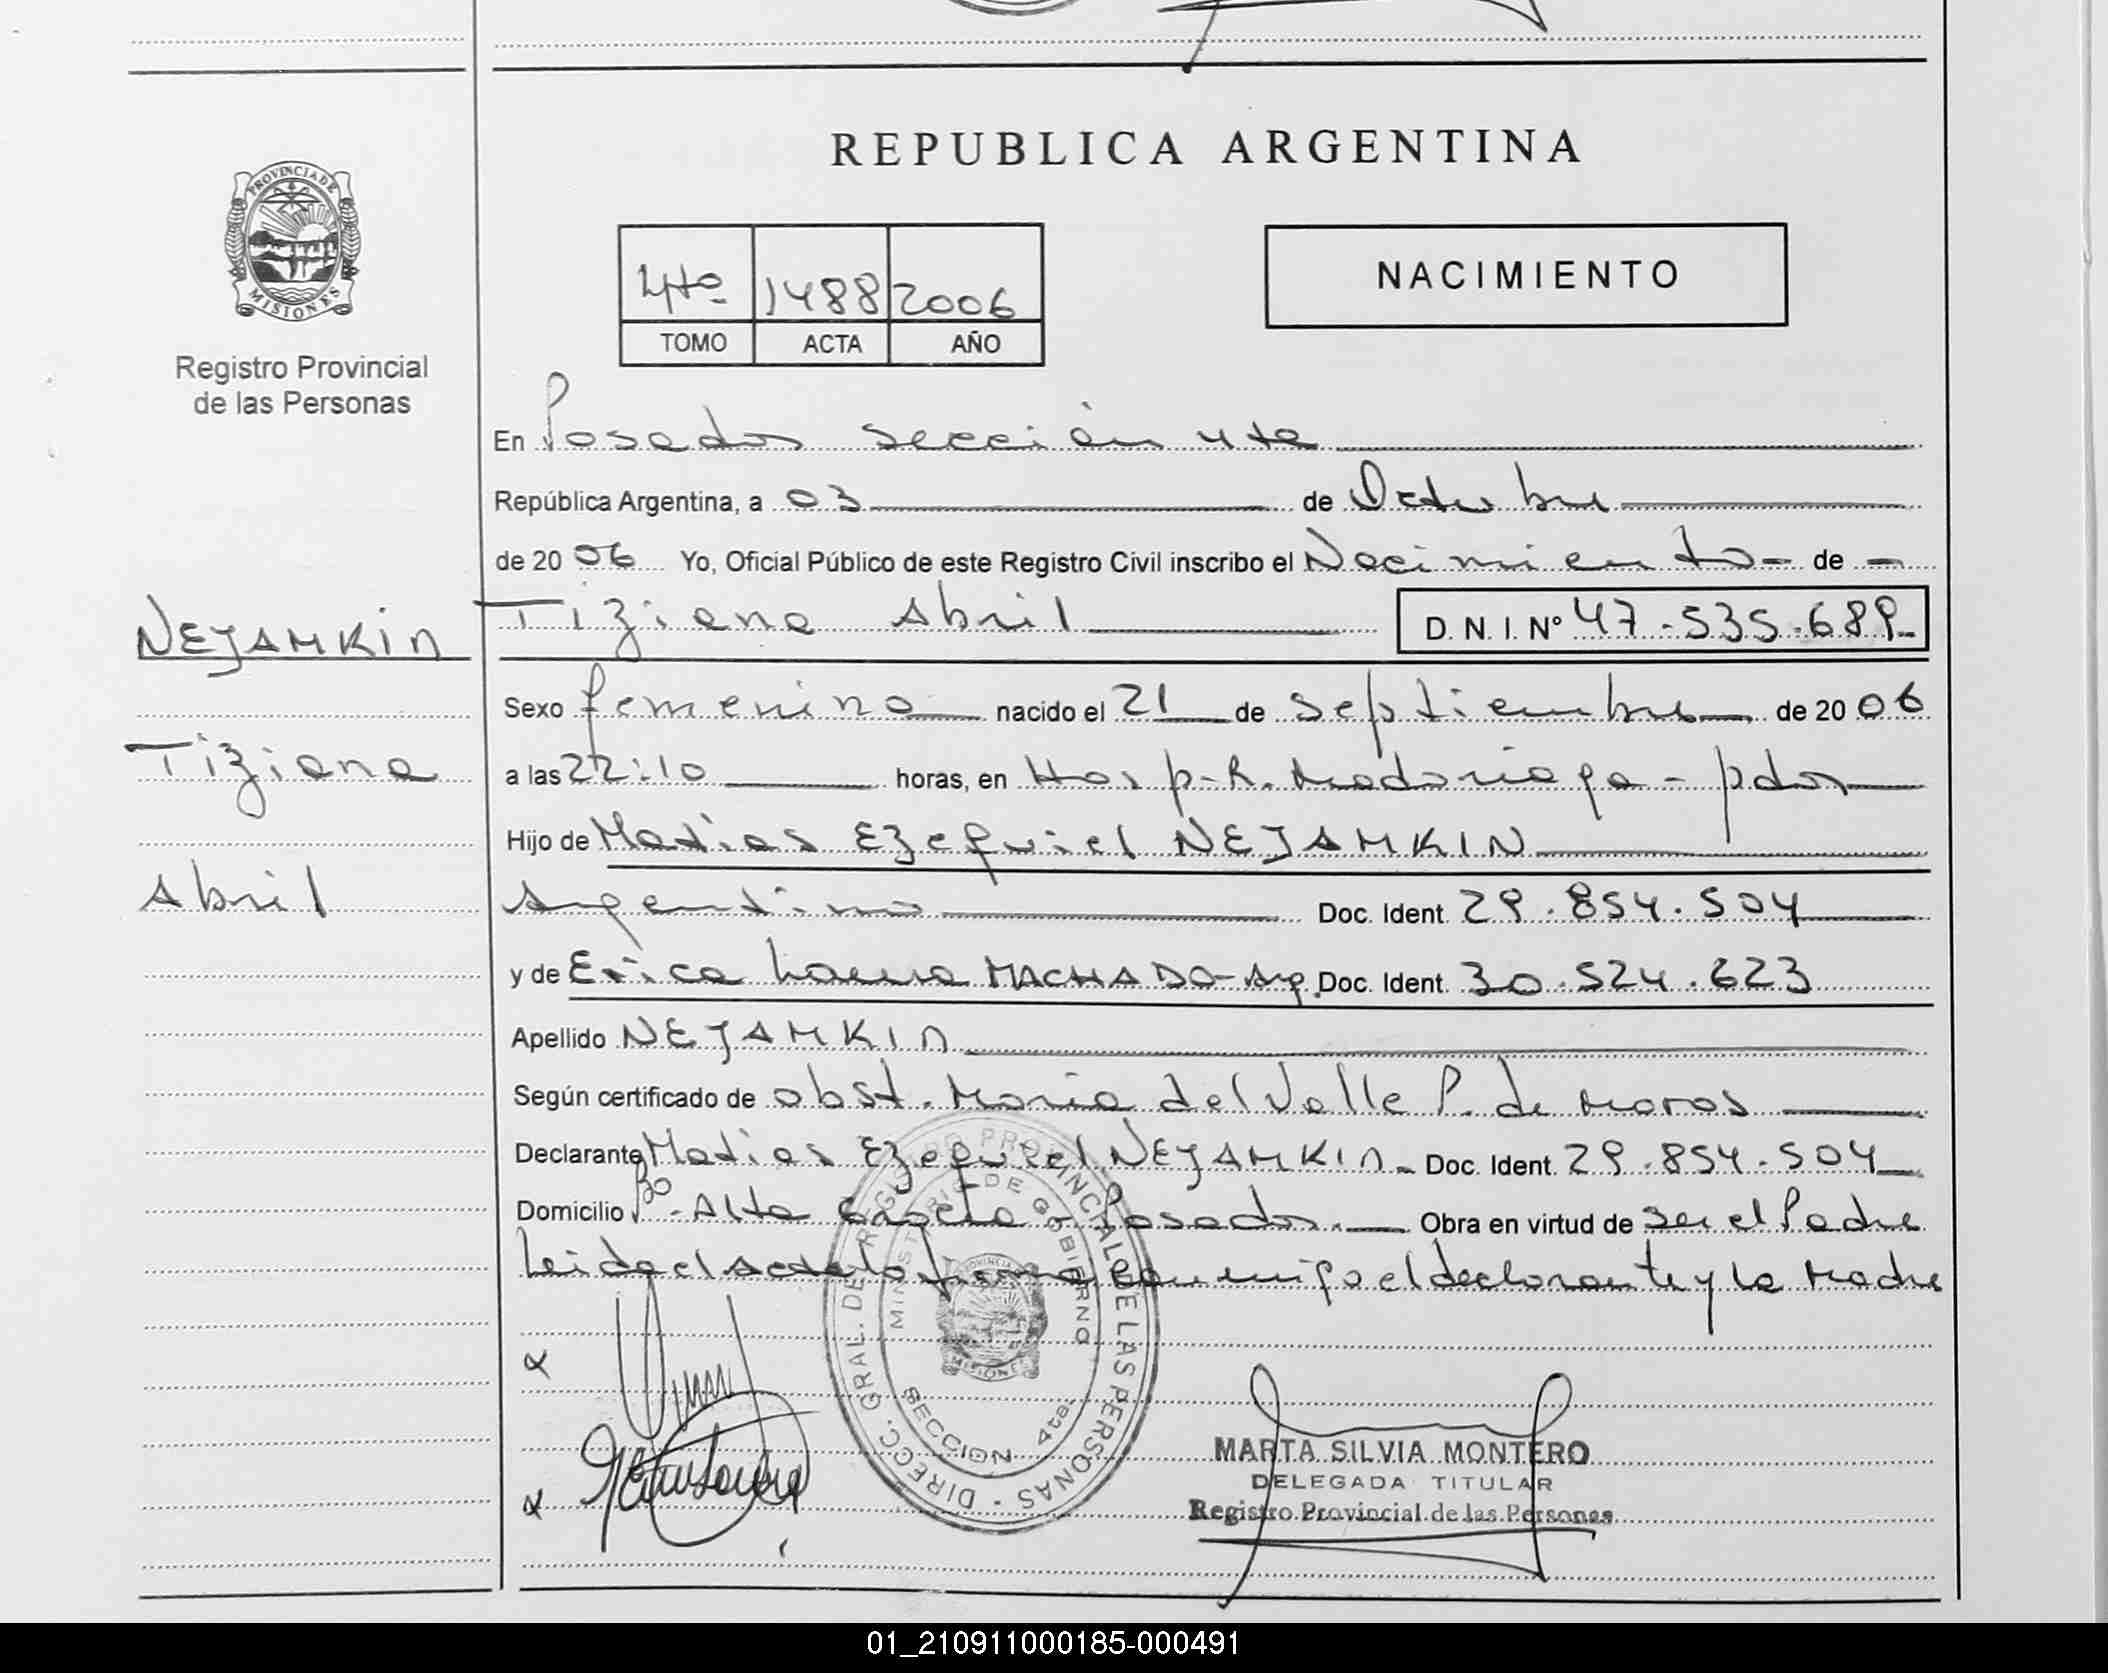 REPUBLICA ARGENTINA
PROVINCIA DE MISIONES
Registro Provincial
de las Personas
4to 1488 2006
TOMO ACTA AÑO
NACIMIENTO
En Posadas sección 4ta
República Argentina, a 03 de Octubre
de 20 06 Yo, Oficial Público de este Registro Civil inscribo el Nacimiento - de -
NEJAMKIN
Tiziana
Abril
Tiziana Abril D. N. I. Nº 47.535.689
Sexo femenino nacido el 21 de septiembre de 20 06
a las 22:10 horas, en Hosp. R. Madariaga - pdas
Hijo de Matias Ezequiel NEJAMKIN
Argentino Doc. Ident. 29.854.504
y de Erica Laura MACHADO - Arg. Doc. Ident. 30.524.623
Apellido NEJAMKIN
Según certificado de obst. Maria del Valle P. de Moras
Declarante Matias Ezequiel NEJAMKIN - Doc. Ident. 29.854.504
Domicilio Bº. Alta Gracia - Posadas. Obra en virtud de ser el Padre
Leida el acta la firma conmigo el declarante y la Madre
DIRECC. GRAL. DE REGISTRO PROVINCIAL DE LAS PERSONAS
MINISTERIO DE GOBIERNO
PROVINCIA
MISIONES
SECCION 4ta.
MARTA SILVIA MONTERO
DELEGADA TITULAR
Registro Provincial de las Personas
01_210911000185-000491